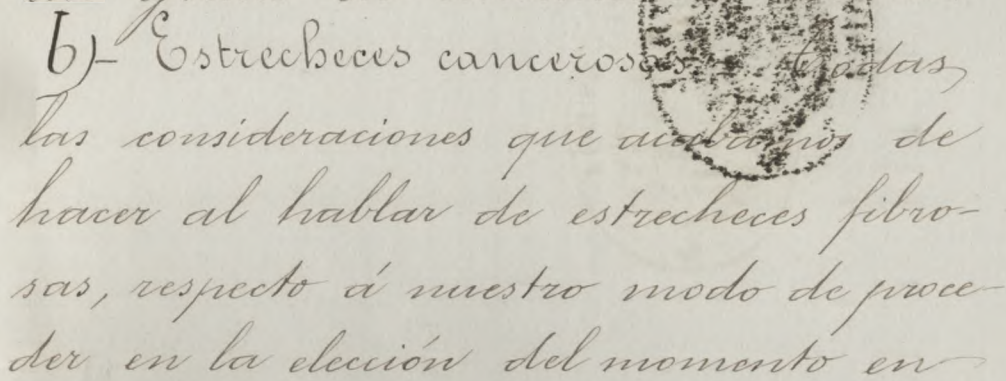 b)- Estrecheces cancerosas - todas,
las consideraciones que acabamos de
hacer al hablar de estrecheces fibro-
sas, respecto á nuestro modo de proce-
der en la elección del momento en